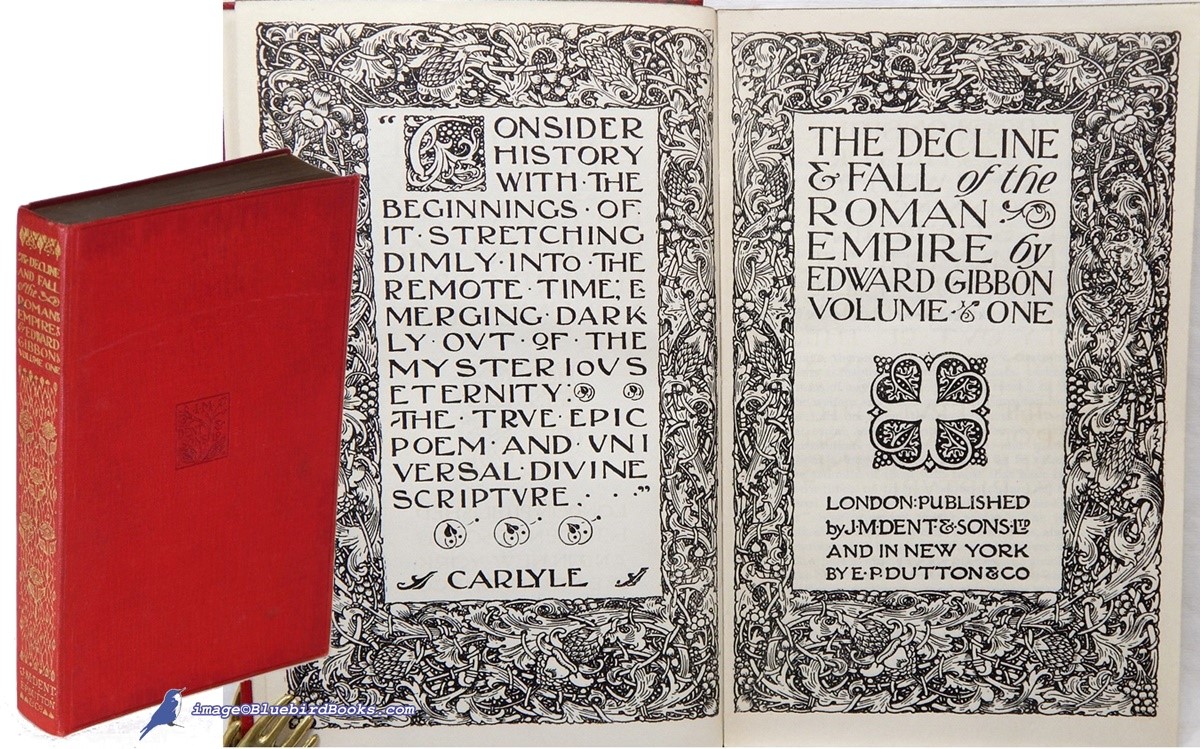 THE DECLINE
AND FALL
of the
ROMAN
EMPIRE
EDWARD
GIBBON
VOLUME ONE
J.M.DENT
E.P.DUTTON
& CO
“CONSIDER
HISTORY
WITH·THE
BEGINNINGS·OF
IT·STRETCHING
DIMLY·INTO·THE
REMOTE·TIME; E
MERGING·DARK
LY·OVT·OF·THE
MYSTERIOVS
ETERNITY:
THE·TRVE·EPIC
POEM·AND·VNI
VERSAL·DIVINE
SCRIPTVRE. . .”
CARLYLE
THE DECLINE
& FALL of the
ROMAN
EMPIRE by
EDWARD GIBBON
VOLUME ONE
LONDON:PUBLISHED
by J·M·DENT & SONS·LTD
AND IN NEW YORK
BY E·P·DUTTON & CO
image©BluebirdBooks.com